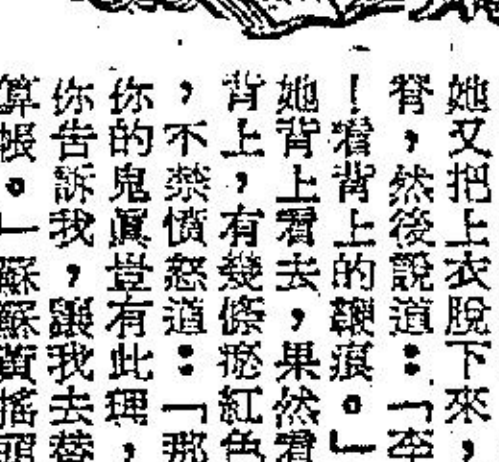 她又把上衣脫下來，
脊，然後說道：「李
！看，背上的鞭痕。」
她背上看去，果然看
背上，有幾條瘀紅色
，不禁憤怒道：「那
你的鬼真豈有此理，
你告訴我，讓我去替
算帳。」蘇蘇黃搖頭